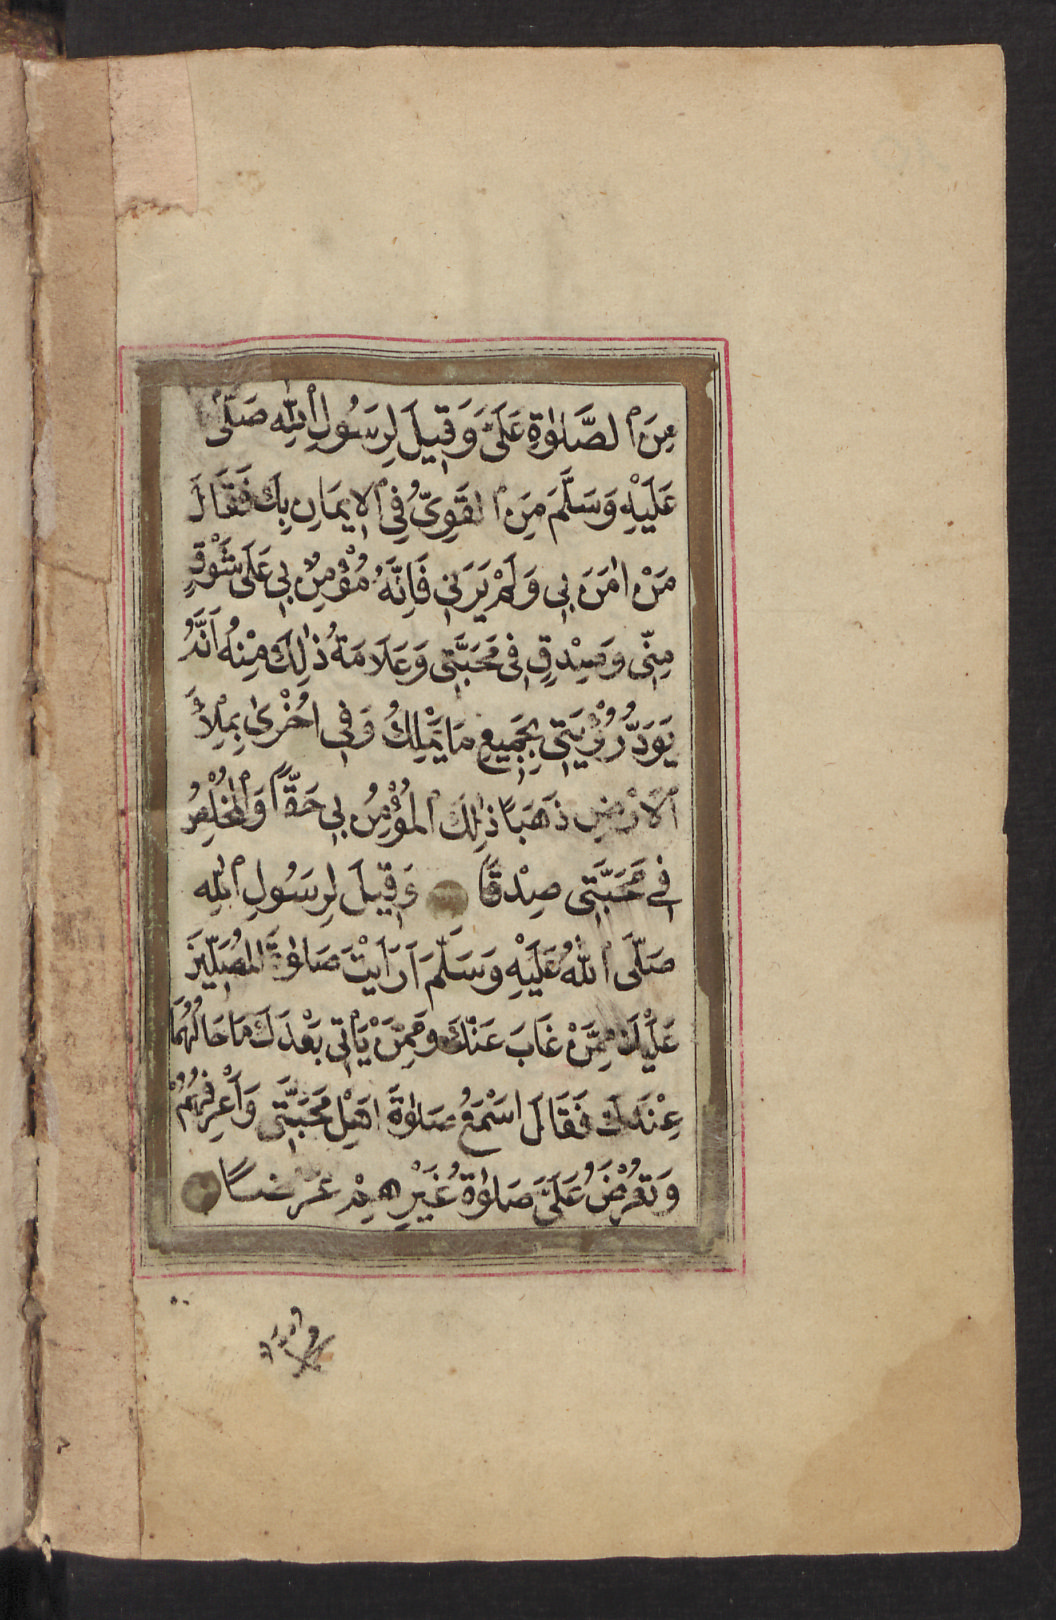 مِنَ ٱلصَّلٰوةِ عَلَيَّ وَقِيلَ لِرَسُولِ ٱللّٰهِ صَلَّى
عَلَيْهِ وَسَلَّمَ مَنِ ٱلقَوِيُّ فِي ٱلإِيمَانِ بِكَ فَقَالَ
مَنْ اٰمَنَ بِي وَلَمْ يَرَنِي فَاِنَّهُ مُؤْمِنٌ بِي عَلَى شَوْقٍ
مِنِّي وَصِدْقٍ فِي مَحَبَّتِي وَعَلَامَةُ ذٰلِكَ مِنْهُ اَنَّهُ
يَوَدُّ رُؤْيَتِي بِجَمِيعِ مَا يَمْلِكُ وَفِي اُخْرٰى بِمِلْأِ
ٱلْاَرْضِ ذَهَبًا ذٰلِكَ ٱلمُؤْمِنُ بِي حَقًّا وَٱلمُخْلِصُ
فِي مَحَبَّتِي صِدْقًا وَقِيلَ لِرَسُولِ ٱللّٰهِ
صَلَّى ٱللّٰهُ عَلَيْهِ وَسَلَّمَ اَرَاَيْتَ صَلٰوةَ المُصَلِّينَ
عَلَيْكَ مِمَّنْ غَابَ عَنْكَ وَمِمَّنْ يَأْتِي بَعْدَكَ مَا حَالُهُمَا
عِنْدَكَ فَقَالَ اَسْمَعُ صَلٰوةَ اَهْلِ مَحَبَّتِي وَاَعْرِفُهُمْ
وَتُعْرَضُ عَلَيَّ صَلٰوةُ غَيْرِهِمْ عَرْضًا